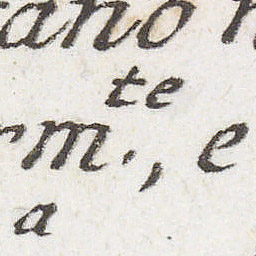 ano
te
m., e
a